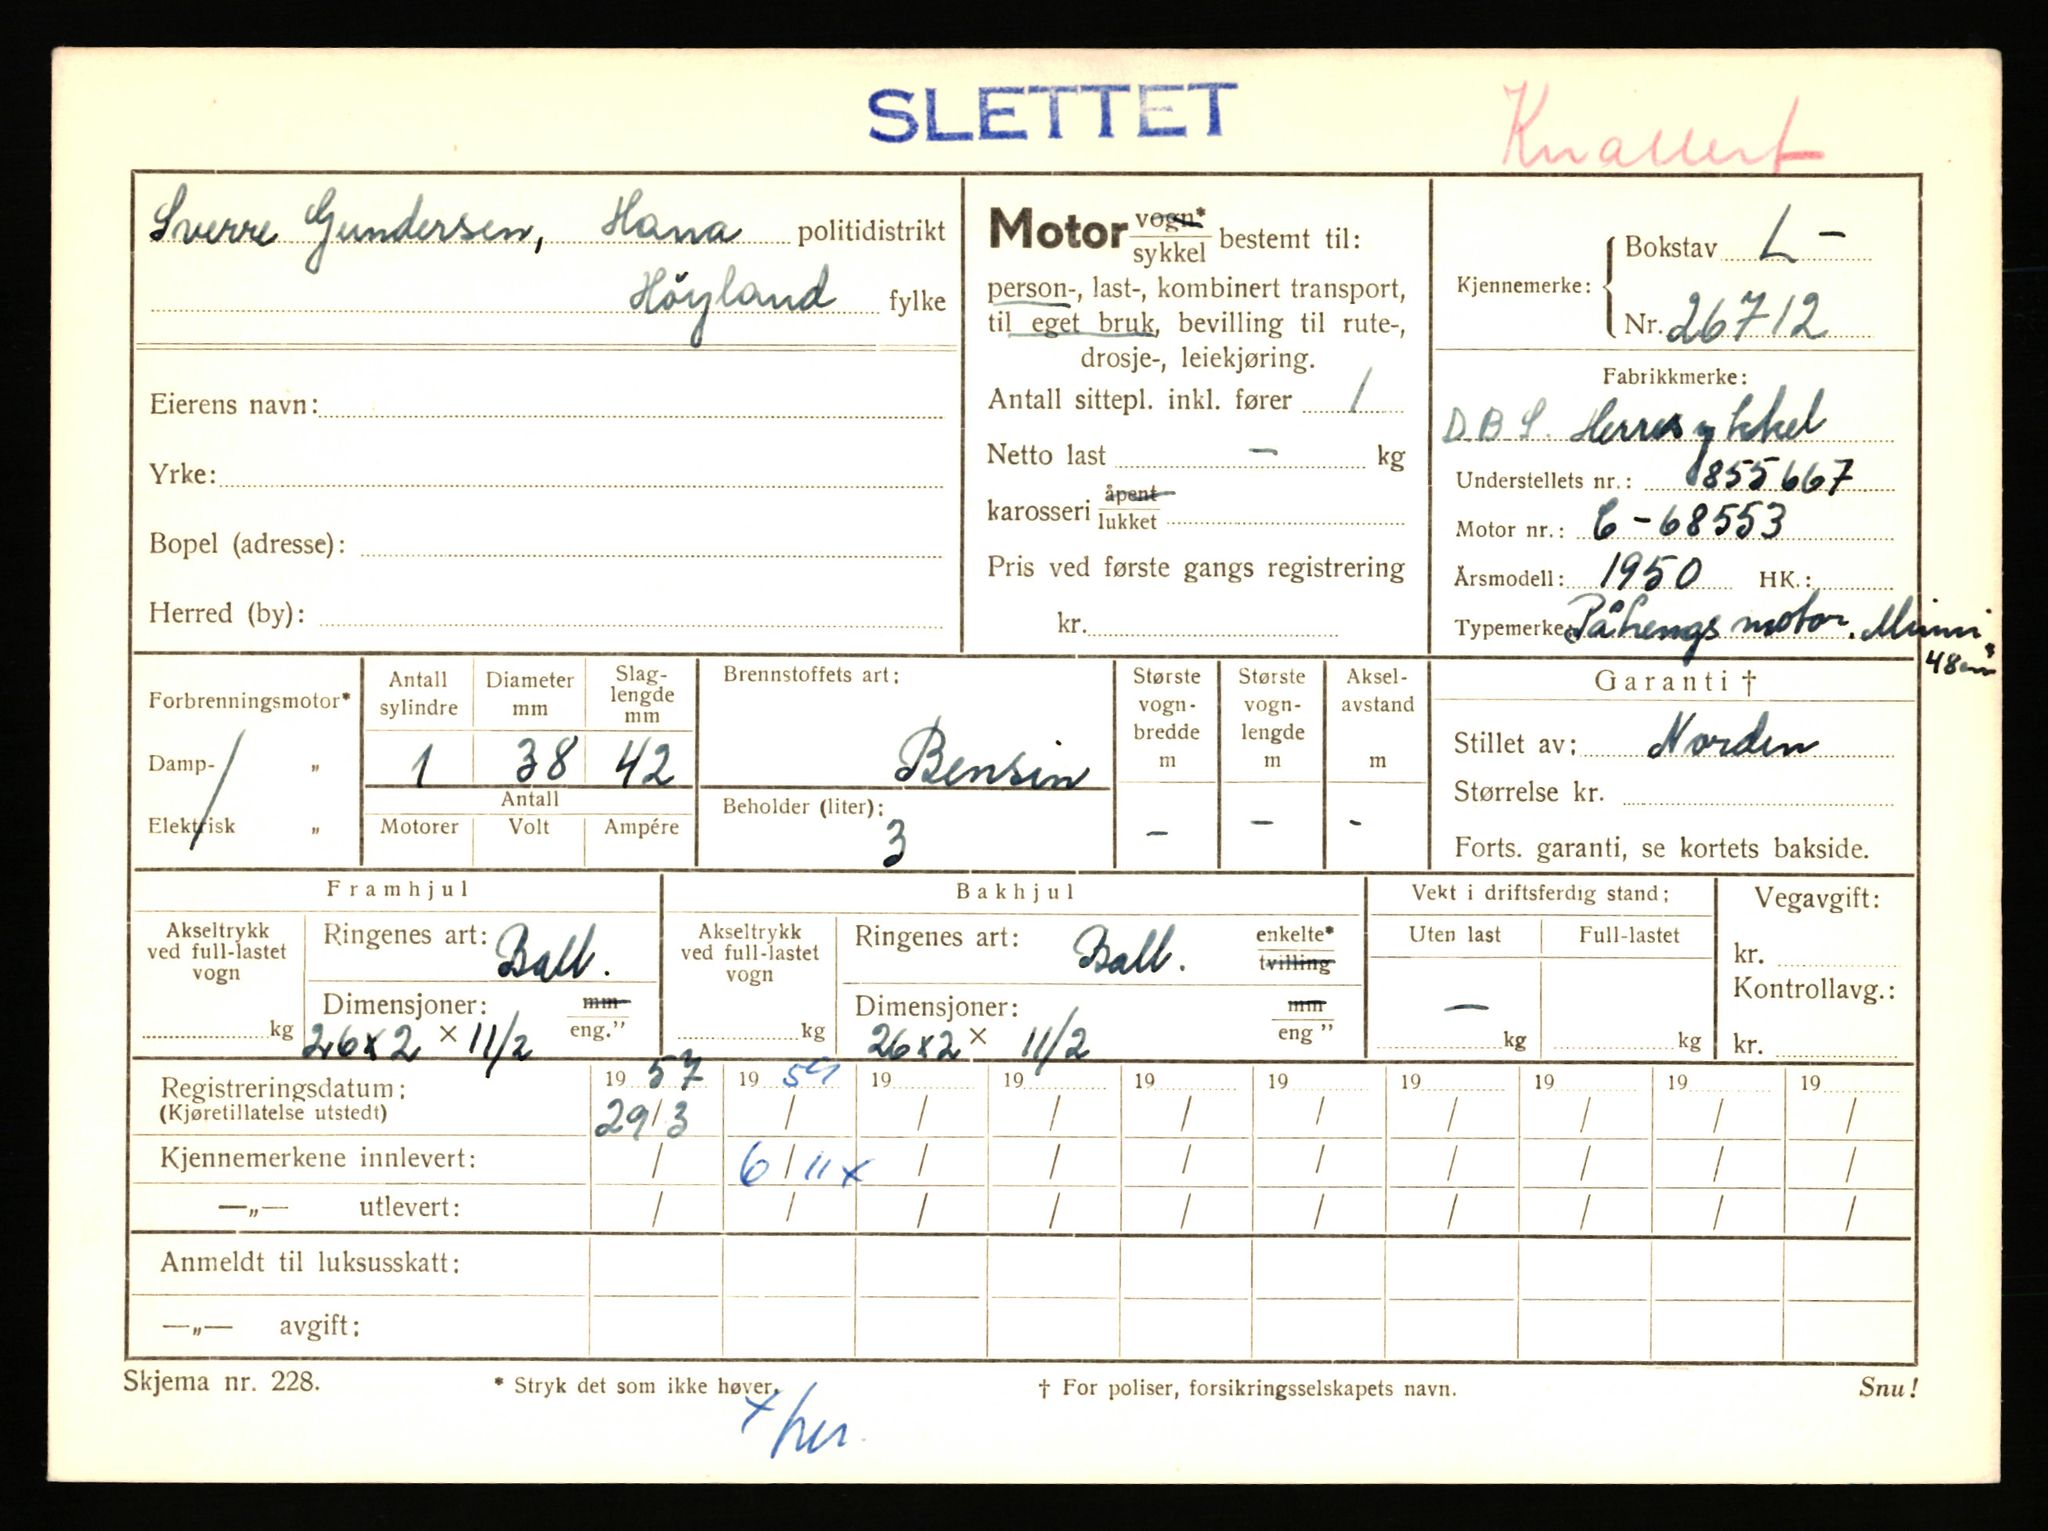 SLETTET
Knallert
Sverre Gundersen, Hana politidistrikt
Höyland fylke
Eierens navn:
Yrke:
Bopel (adresse):
Herred (by):
Motor vogn* sykkel bestemt til:
person-, last-, kombinert transport,
til eget bruk, bevilling til rute-,
drosje-, leiekjøring.
Antall sittepl. inkl. fører 1
Netto last — kg
karosseri åpent lukket
Pris ved første gangs registrering
kr.
Kjennemerke: Bokstav L -
Nr. 26712
Fabrikkmerke:
D.B.S. Herresykkel
Understellets nr.: 1855667
Motor nr.: C-68553
Årsmodell: 1950 HK.:
Typemerke: Påhengsmotor. Mini
48cm³
Forbrenningsmotor*
Damp- „
Elektrisk „
Antall sylindre Diameter mm Slag-lengde mm
1 38 42
Antall
Motorer Volt Ampére
Brennstoffets art:
Bensin
Beholder (liter):
3
Største vogn-bredde m
—
Største vogn-lengde m
—
Aksel-avstand m
-
Garanti †
Stillet av: Norden
Størrelse kr.
Forts. garanti, se kortets bakside.
Framhjul
Akseltrykk ved full-lastet vogn
kg
Ringenes art: Ball.
Dimensjoner: mm eng.”
26x2 × 11/2
Bakhjul
Akseltrykk ved full-lastet vogn
kg
Ringenes art: Ball. enkelte* tvilling
Dimensjoner: mm eng ”
26x2 × 11/2
Vekt i driftsferdig stand:
Uten last Full-lastet
—
kg kg
Vegavgift:
kr.
Kontrollavg.:
kr.
Registreringsdatum: 19 57 19 59 19 19 19 19 19 19 19 19
(Kjøretillatelse utstedt) 29/3 / / / / / / / / /
Kjennemerkene innlevert: / 6/11 x / / / / / / / /
—„— utlevert: / / / / / / / / / /
Anmeldt til luksusskatt:
—„— avgift:
Skjema nr. 228. * Stryk det som ikke høver. † For poliser, forsikringsselskapets navn. Snu!
x/her.